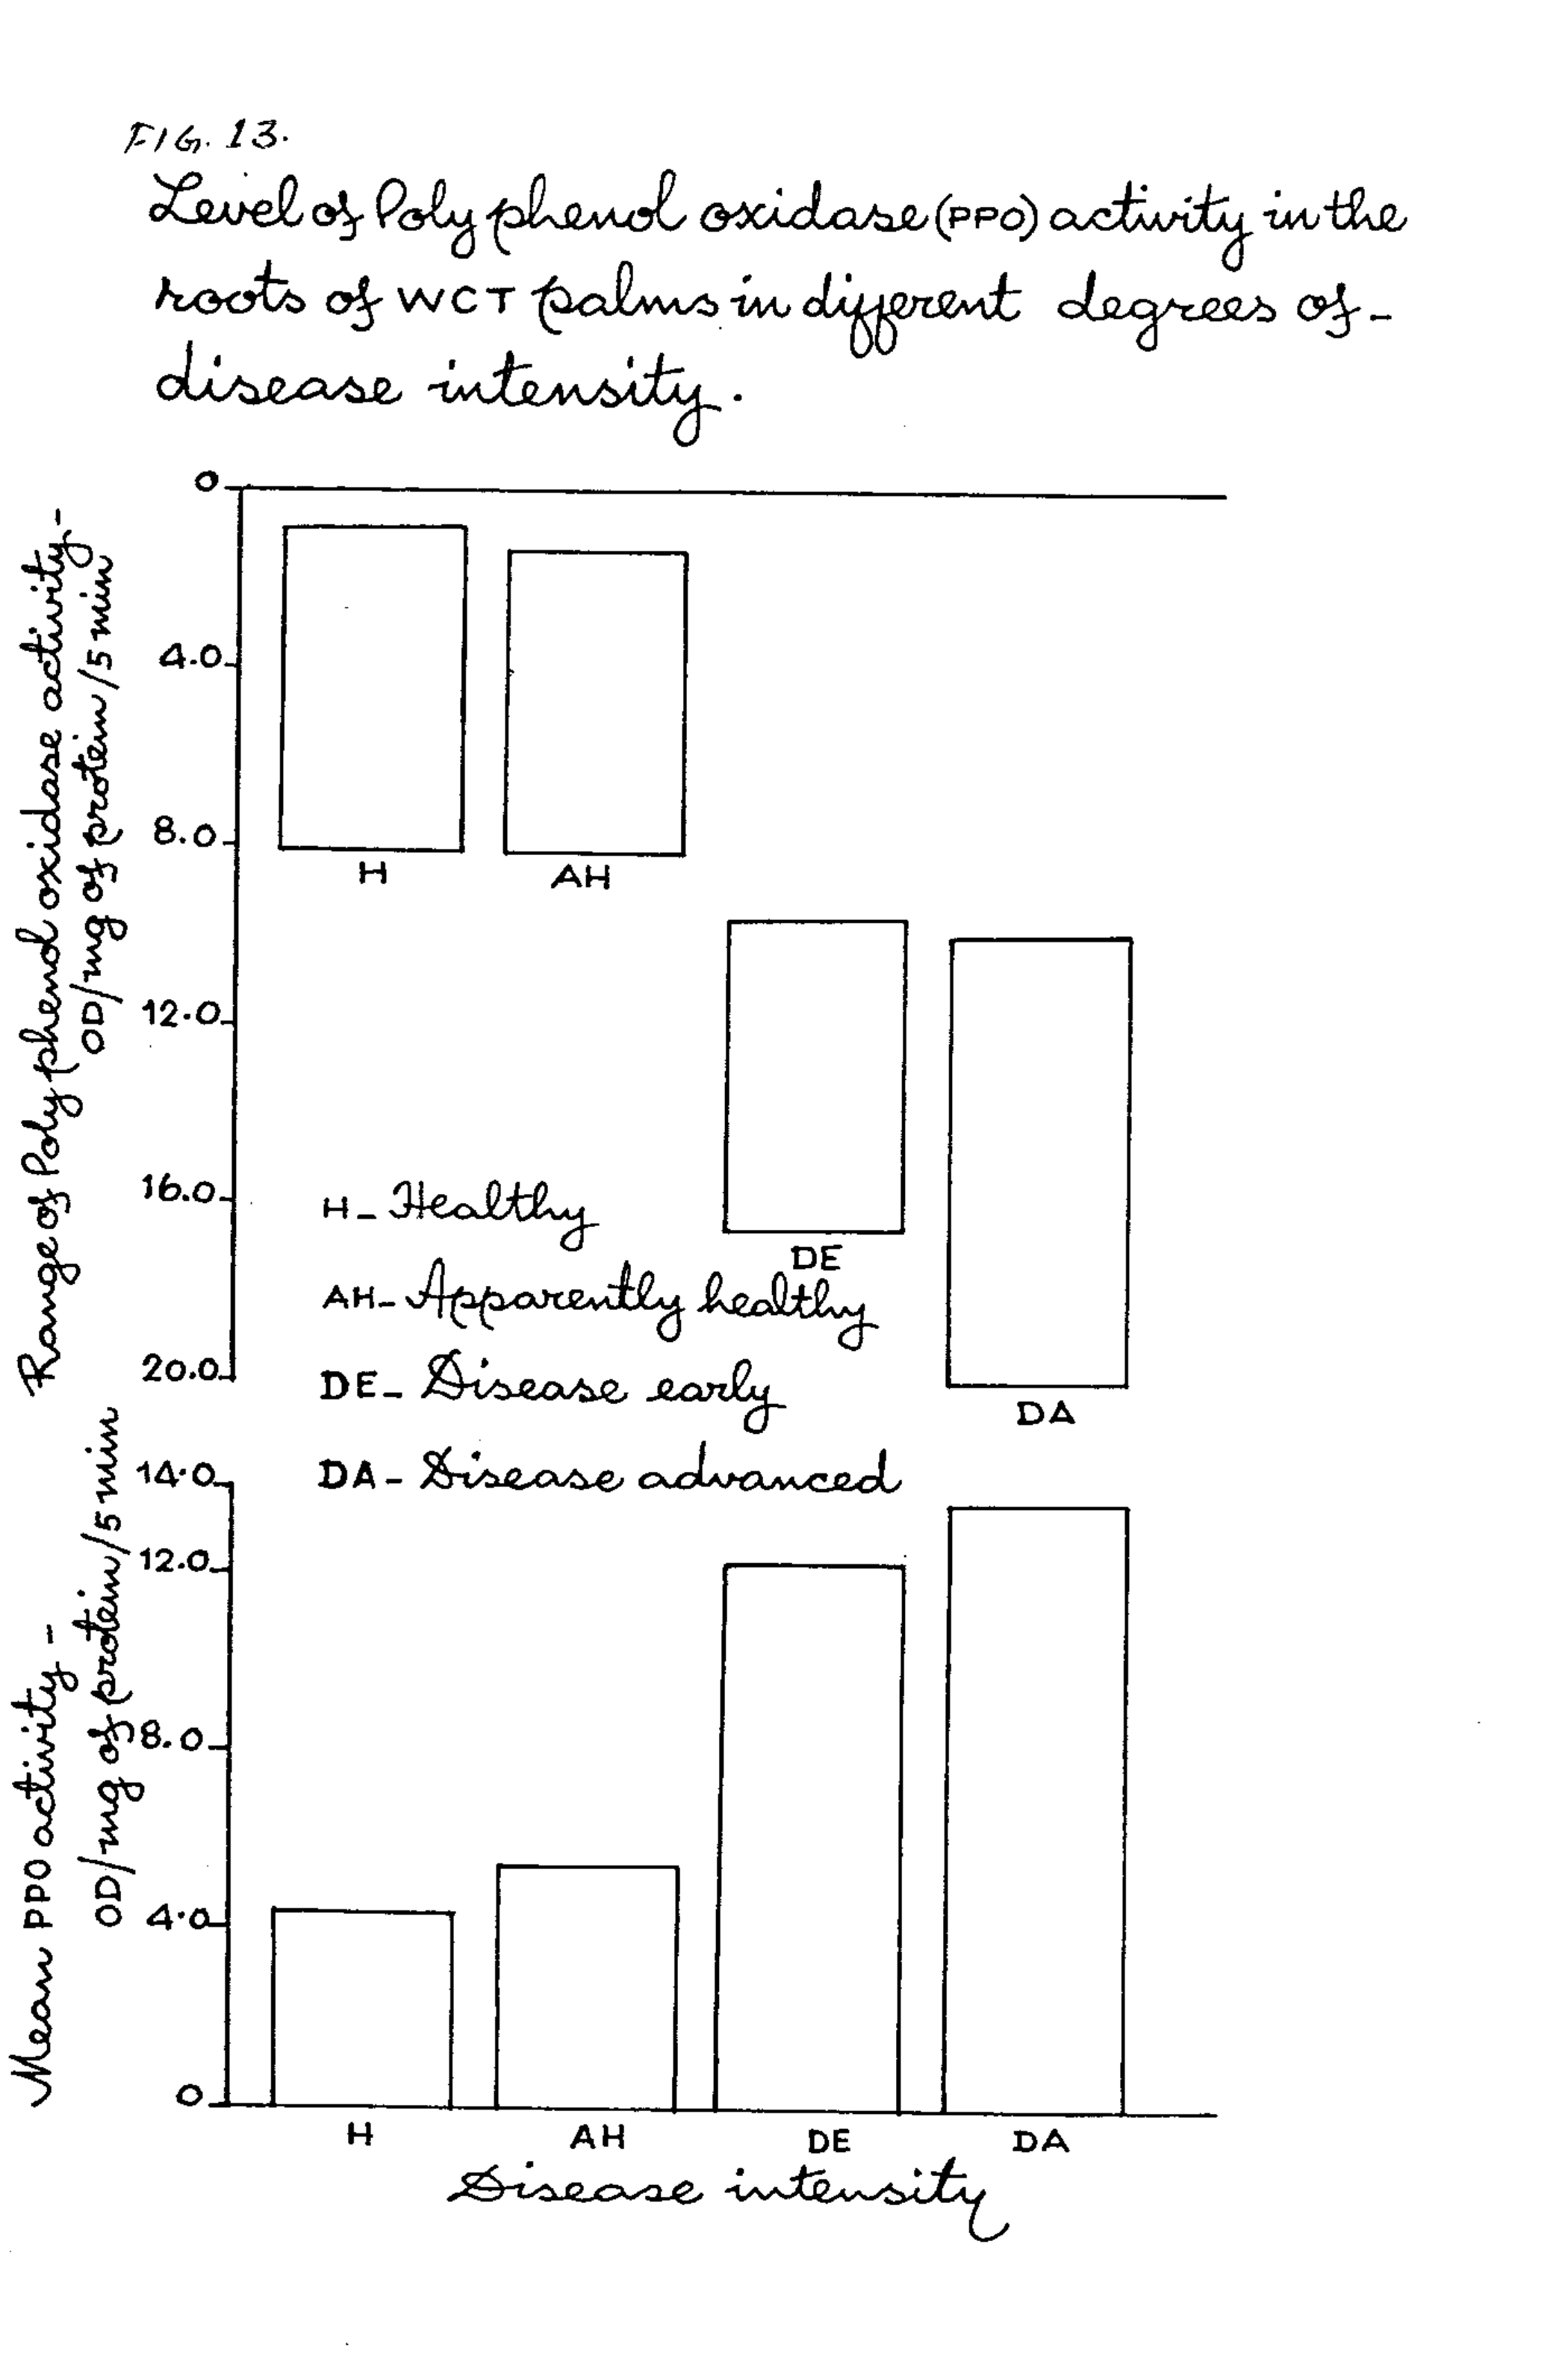 FIG. 13.
Level of Poly phenol oxidase (PPO) activity in the
roots of WCT palms in different degrees of -
disease intensity.
Range of Poly phenol oxidase activity -
OD/mg of protein/5 min
0
4.0
8.0
12.0
16.0
20.0
H
AH
DE
DA
H - Healthy
AH - Apparently healthy
DE - Disease early
DA - Disease advanced
Mean PPO activity -
OD/mg of protein/5 min
14.0
12.0
8.0
4.0
0
H AH DE DA
Disease intensity